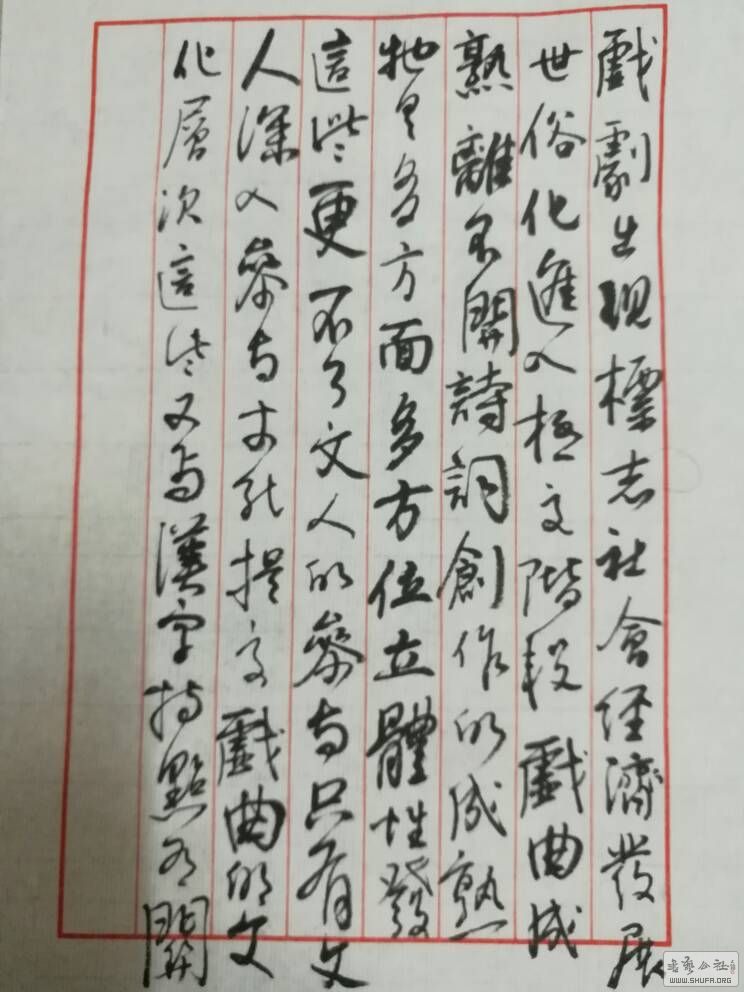 戲劇出現標志社會經濟發展
世俗化進入極高階段戲曲成
熟離不開詩詞創作的成熟
牠是多方面多方位立體性發
這些更不了文人的參与只有文
人深入參与才能提高戲曲的文
化層次這些又与漢字特點有關
書藝公社
WWW.SHUFA.ORG